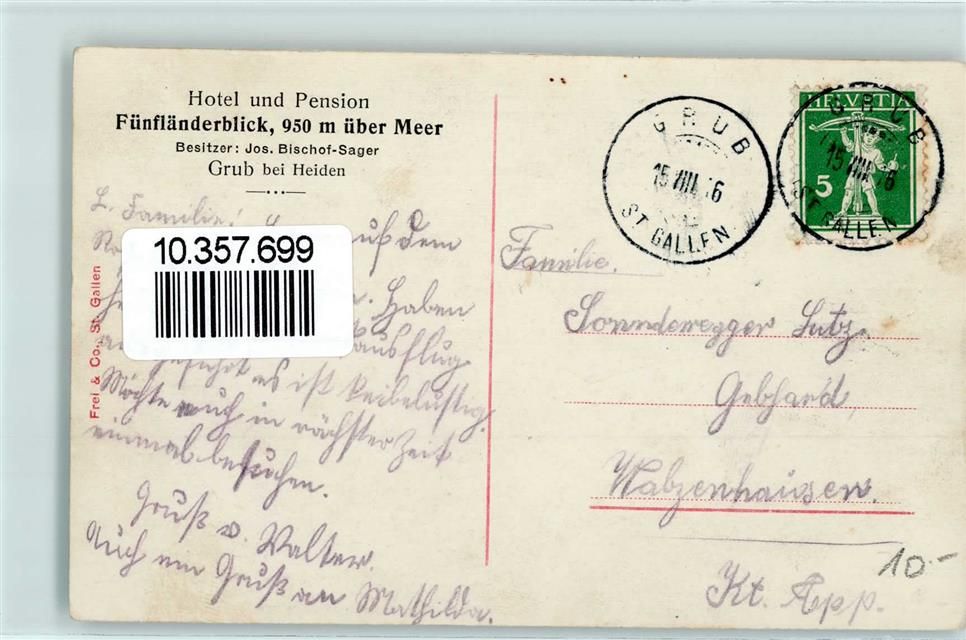 Hotel und Pension
Fünfländerblick, 950 m über Meer
Besitzer: Jos. Bischof-Sager
Grub bei Heiden
L. Familie! auf dem
10.357.699
Haben
ausflug
ausgeführt es ist
Möchte euch in nächster Zeit
einmal besuchen.
Gruß v. Walter.
Auch ein Gruß an Mathilda.
Frei & Co., St. Gallen
GRUB
15 VIII 16
ST. GALLEN
HELVETIA
5
GRUB
15 VIII 16
ST. GALLEN
Familie.
Sonnderegger Lutz.
Gebhard
Walzenhausen.
Kt. App.
10.-